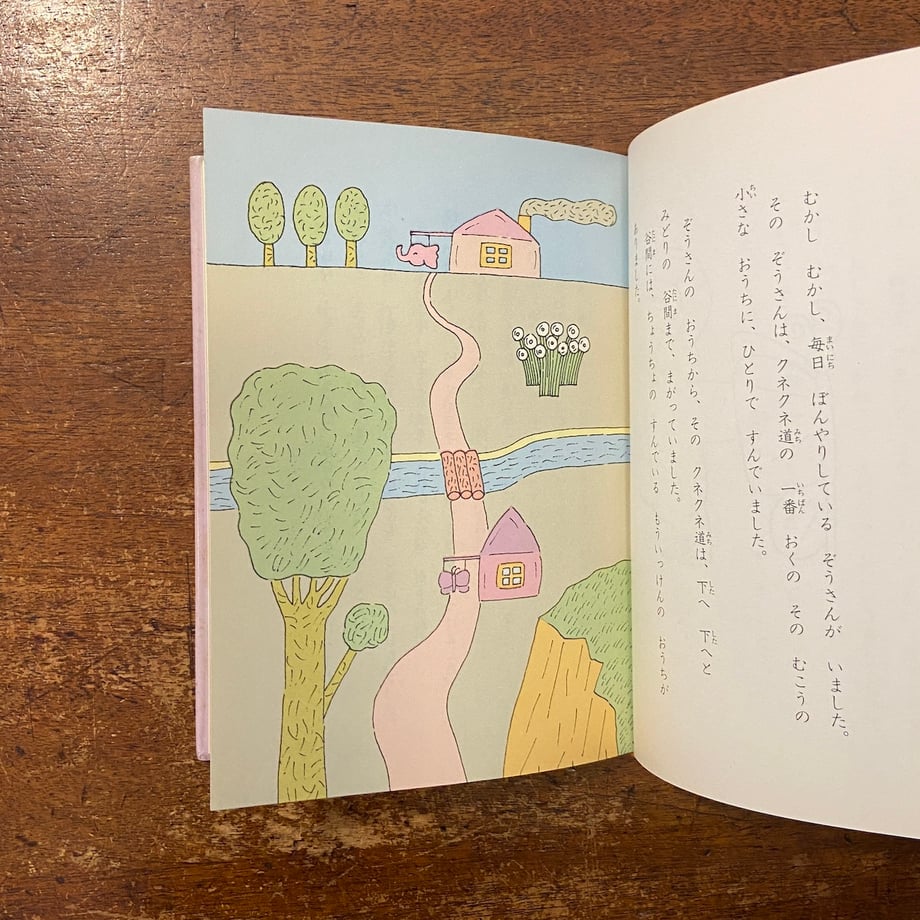 むかし　むかし、毎日　ぼんやりしている　ぞうさんが　いました。
その　ぞうさんは、クネクネ道の　一番　おくの　その　むこうの
小さな　おうちに、ひとりで　すんでいました。
ぞうさんの　おうちから、その　クネクネ道は、下へ　下へと
みどりの　谷間まで、まがっていました。
谷間には、ちょうちょの　すんでいる　もういっけんの　おうちが
ありました。